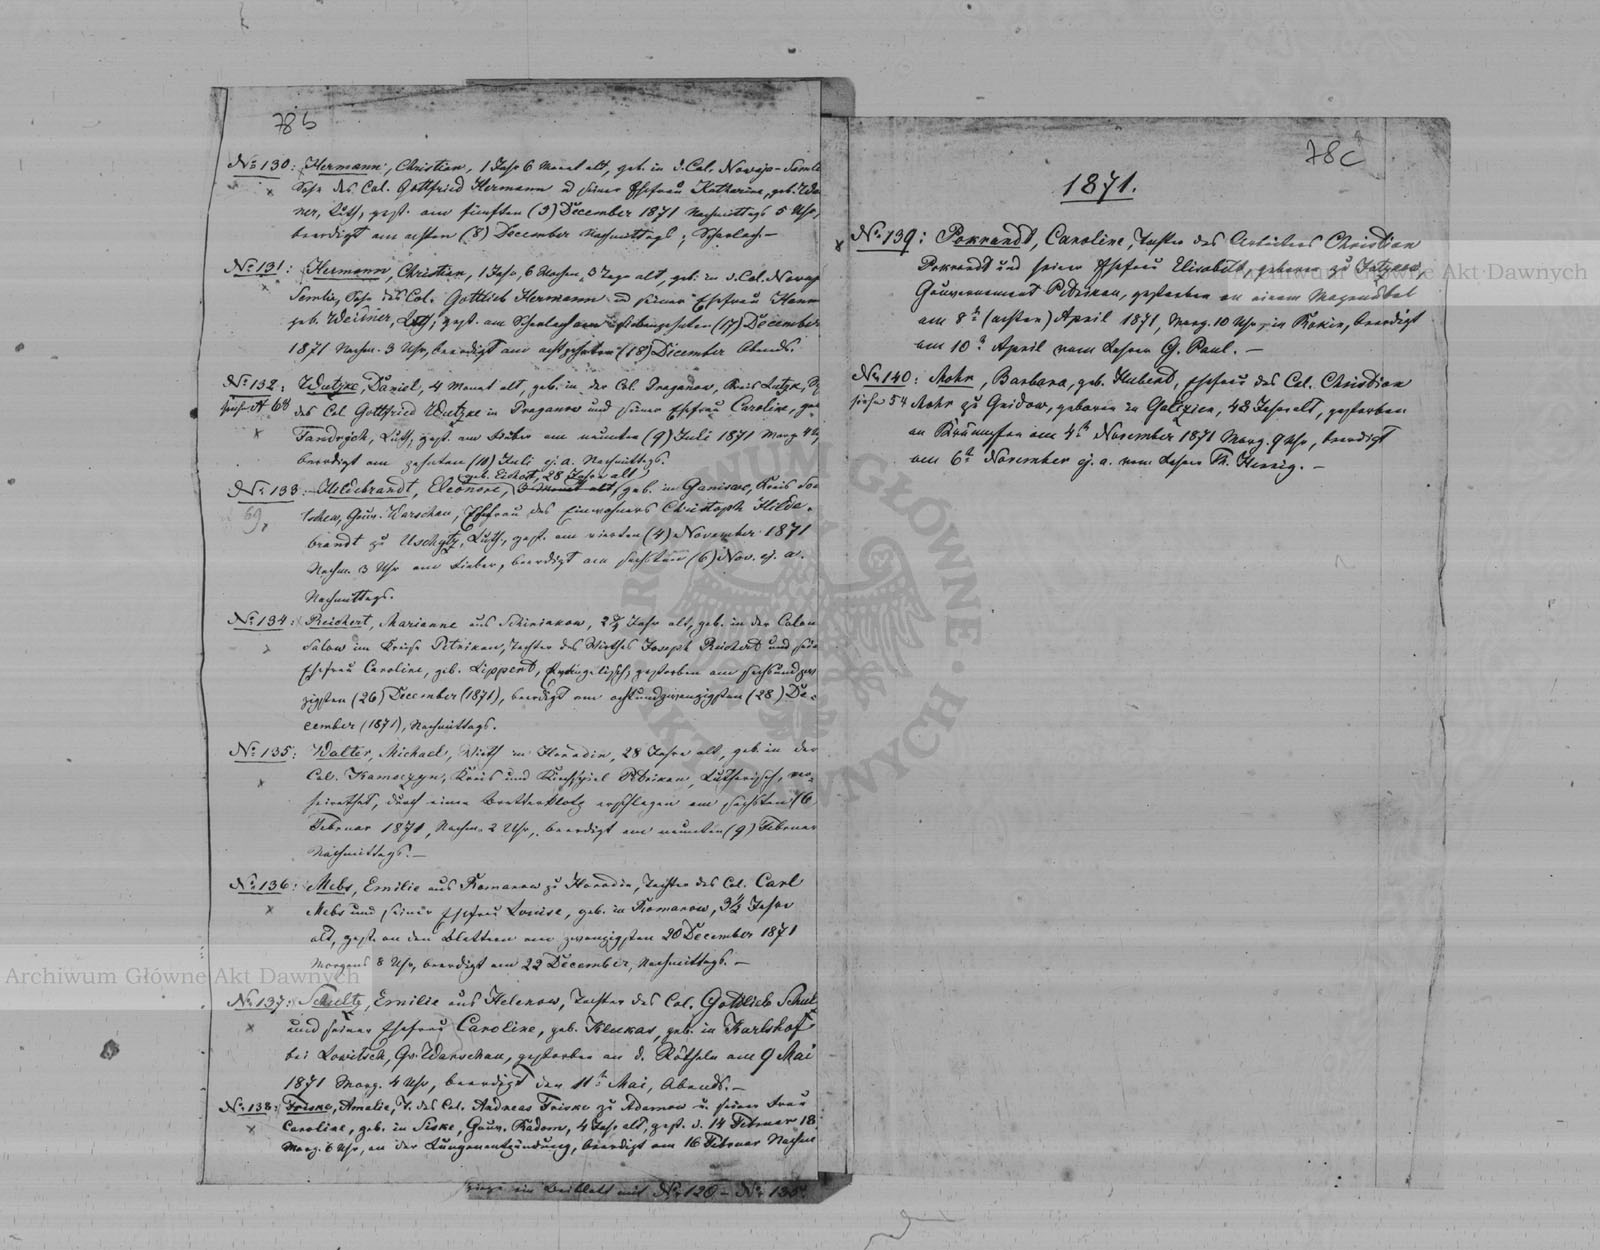 78b
No 130: Hermann, Christian, 1 Jahr 6 Monat alt, geb. in d. Col. Nowaja-Semli
Sohn des Col. Gottfried Hermann u seiner Ehefrau Katharine, geb.
ner, Luth, gest. am fünften (5) December 1871 Nachmittags 5 Uhr,
beerdigt am achten (8) December Nachmittags; Scharlach.—
No 131: Hermann, Christian, 1 Jahr, 6 Wochen 3 Tage alt, geb. in d. Col. Nowaja
Semlia, Sohn des Col. Gottlieb Hermann u seiner Ehefrau
geb. Weidner, Luth, gest. am Scharlach am siebenzehnten (17) December
1871 Nachm. 3 Uhr, beerdigt am achtzehnten (18) December Abends.
No 132: Wutzke, Daniel, 4 Monat alt, geb. in der Col. Praganow, Kreis Lutzk,
siehe No 68 des Col Gottfried Wutzke in Praganow und seiner Ehefrau Caroline,
Fandrich, Luth, gest. am Fieber am neunten (9) Juli 1871 Morg.
beerdigt am zehnten (10) Juli ej. a. Nachmittags.
geb. 28 Jahr alt
No 133: Hildebrandt, Eleonore, 3 Monat alt, geb. in Kreis
69 Gouv. Warschau, Ehefrau des Einwohners Christoph Hilde-
brandt zu Luth., gest. am vierten (4) November 1871
Nachm. 3 Uhr am Fieber, beerdigt am sechsten (6) Nov. ej. a.
Nachmittags.
No 134: Reichert, Marianne aus 2¾ Jahr alt, geb. in der Colon
im Kreise Petrikau, Tochter des Wirthes Joseph Reichert und
Ehefrau Caroline, geb. Lippert, Evangelisch, gestorben am sechsundzwan
zigsten (26) December (1871), beerdigt am achtundzwanzigsten (28) De-
cember (1871), Nachmittags.
No 135: Walter, Michael, Wirth in Horodin, 28 Jahre alt, geb. in der
Col. Kamoczyn, Kreis und Kirchspiel Petrikau, Lutherisch, ver-
heirathet, durch einen erschlagen am sechsten (6
Februar 1871, Nachm. 2 Uhr, beerdigt am neunten (9) Februar
Nachmittags.—
No 136: Mebs, Emilie aus Romanow zu Horodin, Tochter des Col. Carl
Mebs und seiner Ehefrau Louise, geb. in Romanow, 3½ Jahre
alt, gest. an den Blattern am zwanzigsten 20 December 1871
Morgens 8 Uhr, beerdigt am 22 December, Nachmittags.—
No 137: Schultz, Emilie aus Helenow, Tochter des Col. Gottlieb Schul
und seiner Ehefrau Caroline, geb. Klukas, geb. in Karlshof
bei Lowitsch, Gv. Warschau, gestorben an d. Rötheln am 9 Mai
1871 Morg. 4 Uhr, beerdigt den 11ten Mai, Abends.—
No 138: Friske, Amalie, T. des Col. Andreas Friske zu Adamow u. seiner Frau
Caroline, geb. in Gouv. Radom, 4 Jahr alt, gest. d. 14 Februar 18
Morg. 6 Uhr, an der Lungenentzündung, beerdigt am 16 Februar Nachm
ein Beiblatt mit No 120 – No 135
78c
1871.
No 139: Pokrandt, Caroline, Tochter des Arbeiters Christian
Pokrandt und seiner Ehefrau Elisabeth, geboren zu
Gouvernement Petrikau, gestorben an einem Magenübel
am 8ten (achten) April 1871, Morg. 10 Uhr, in Rokin, beerdigt
am 10ten April vom Lehrer G. Paul.—
No 140: Mohr, Barbara, geb. Huber, Ehefrau des Col. Christian
siehe 54 Mohr zu Gnidow, geboren in Galizien, 48 Jahre alt, gestorben
an Krämpfen am 4ten November 1871 Morg. 9 Uhr, beerdigt
am 6ten November ej. a. vom Lehrer Th. Hessig.—
Archiwum Główne Akt Dawnych
Archiwum Główne Akt Dawnych
ARCHIWUM GŁÓWNE AKT DAWNYCH